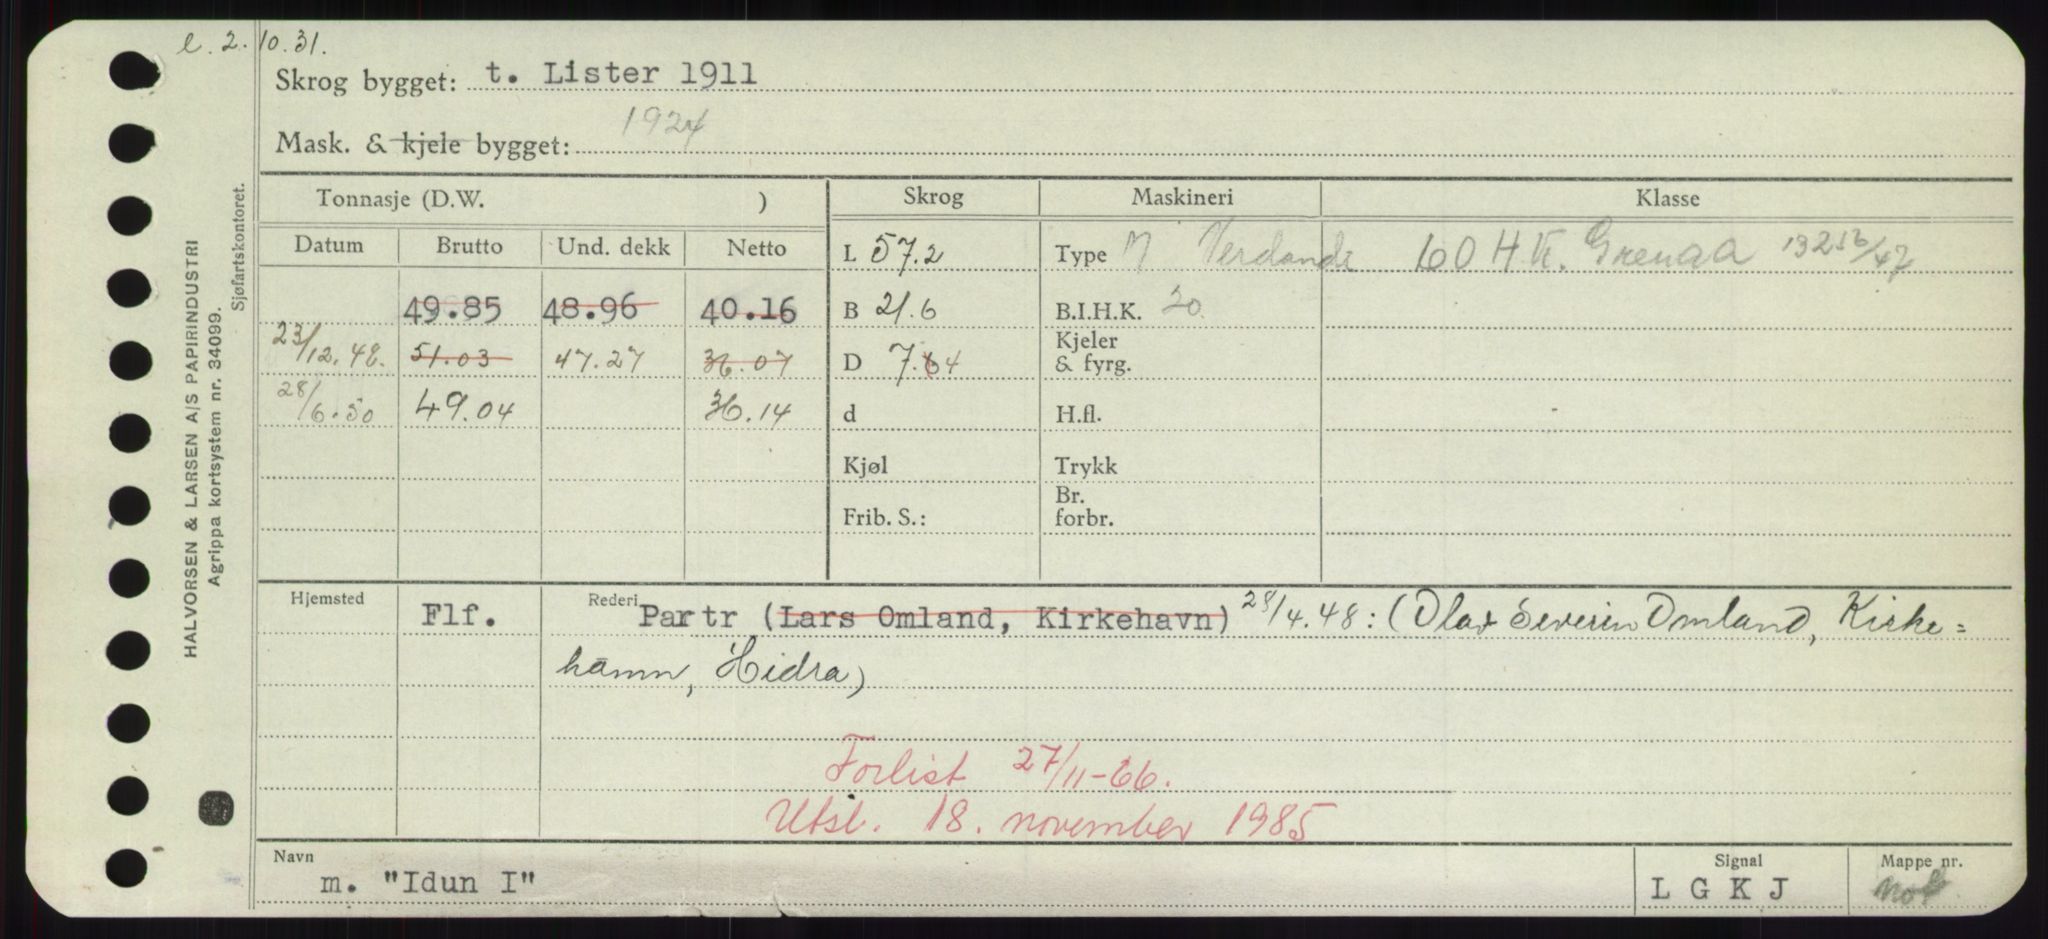 e. 2. 10. 31.
Skrog bygget: t. Lister 1911
Mask. & kjele bygget: 1924
Tonnasje (D.W. ) Skrog Maskineri Klasse
Datum Brutto Und. dekk Netto L 57.2 Type M Verdande 60 H.K. Grenaa 1925 16/47
49.85 48.96 40.16 B 21.6 B.I.H.K. 30
23/12.48. 51.03 47.27 36.07 D 7.64 Kjeler & fyrg.
28/6.50 49.04 36.14 d H.fl.
Kjøl Trykk
Frib. S.: Br. forbr.
Hjemsted Flf. Rederi Partr (Lars Omland, Kirkehavn) 28/4.48: (Olav Severin Omland, Kirke=
hamn, Hidra)
Forlist 27/11-66.
Utsl. 18. november 1985
Navn Signal Mappe nr.
m. "Idun I" L G K J not
HALVORSEN & LARSEN A/S PAPIRINDUSTRI
Agrippa kortsystem nr. 34099.
Sjøfartskontoret.